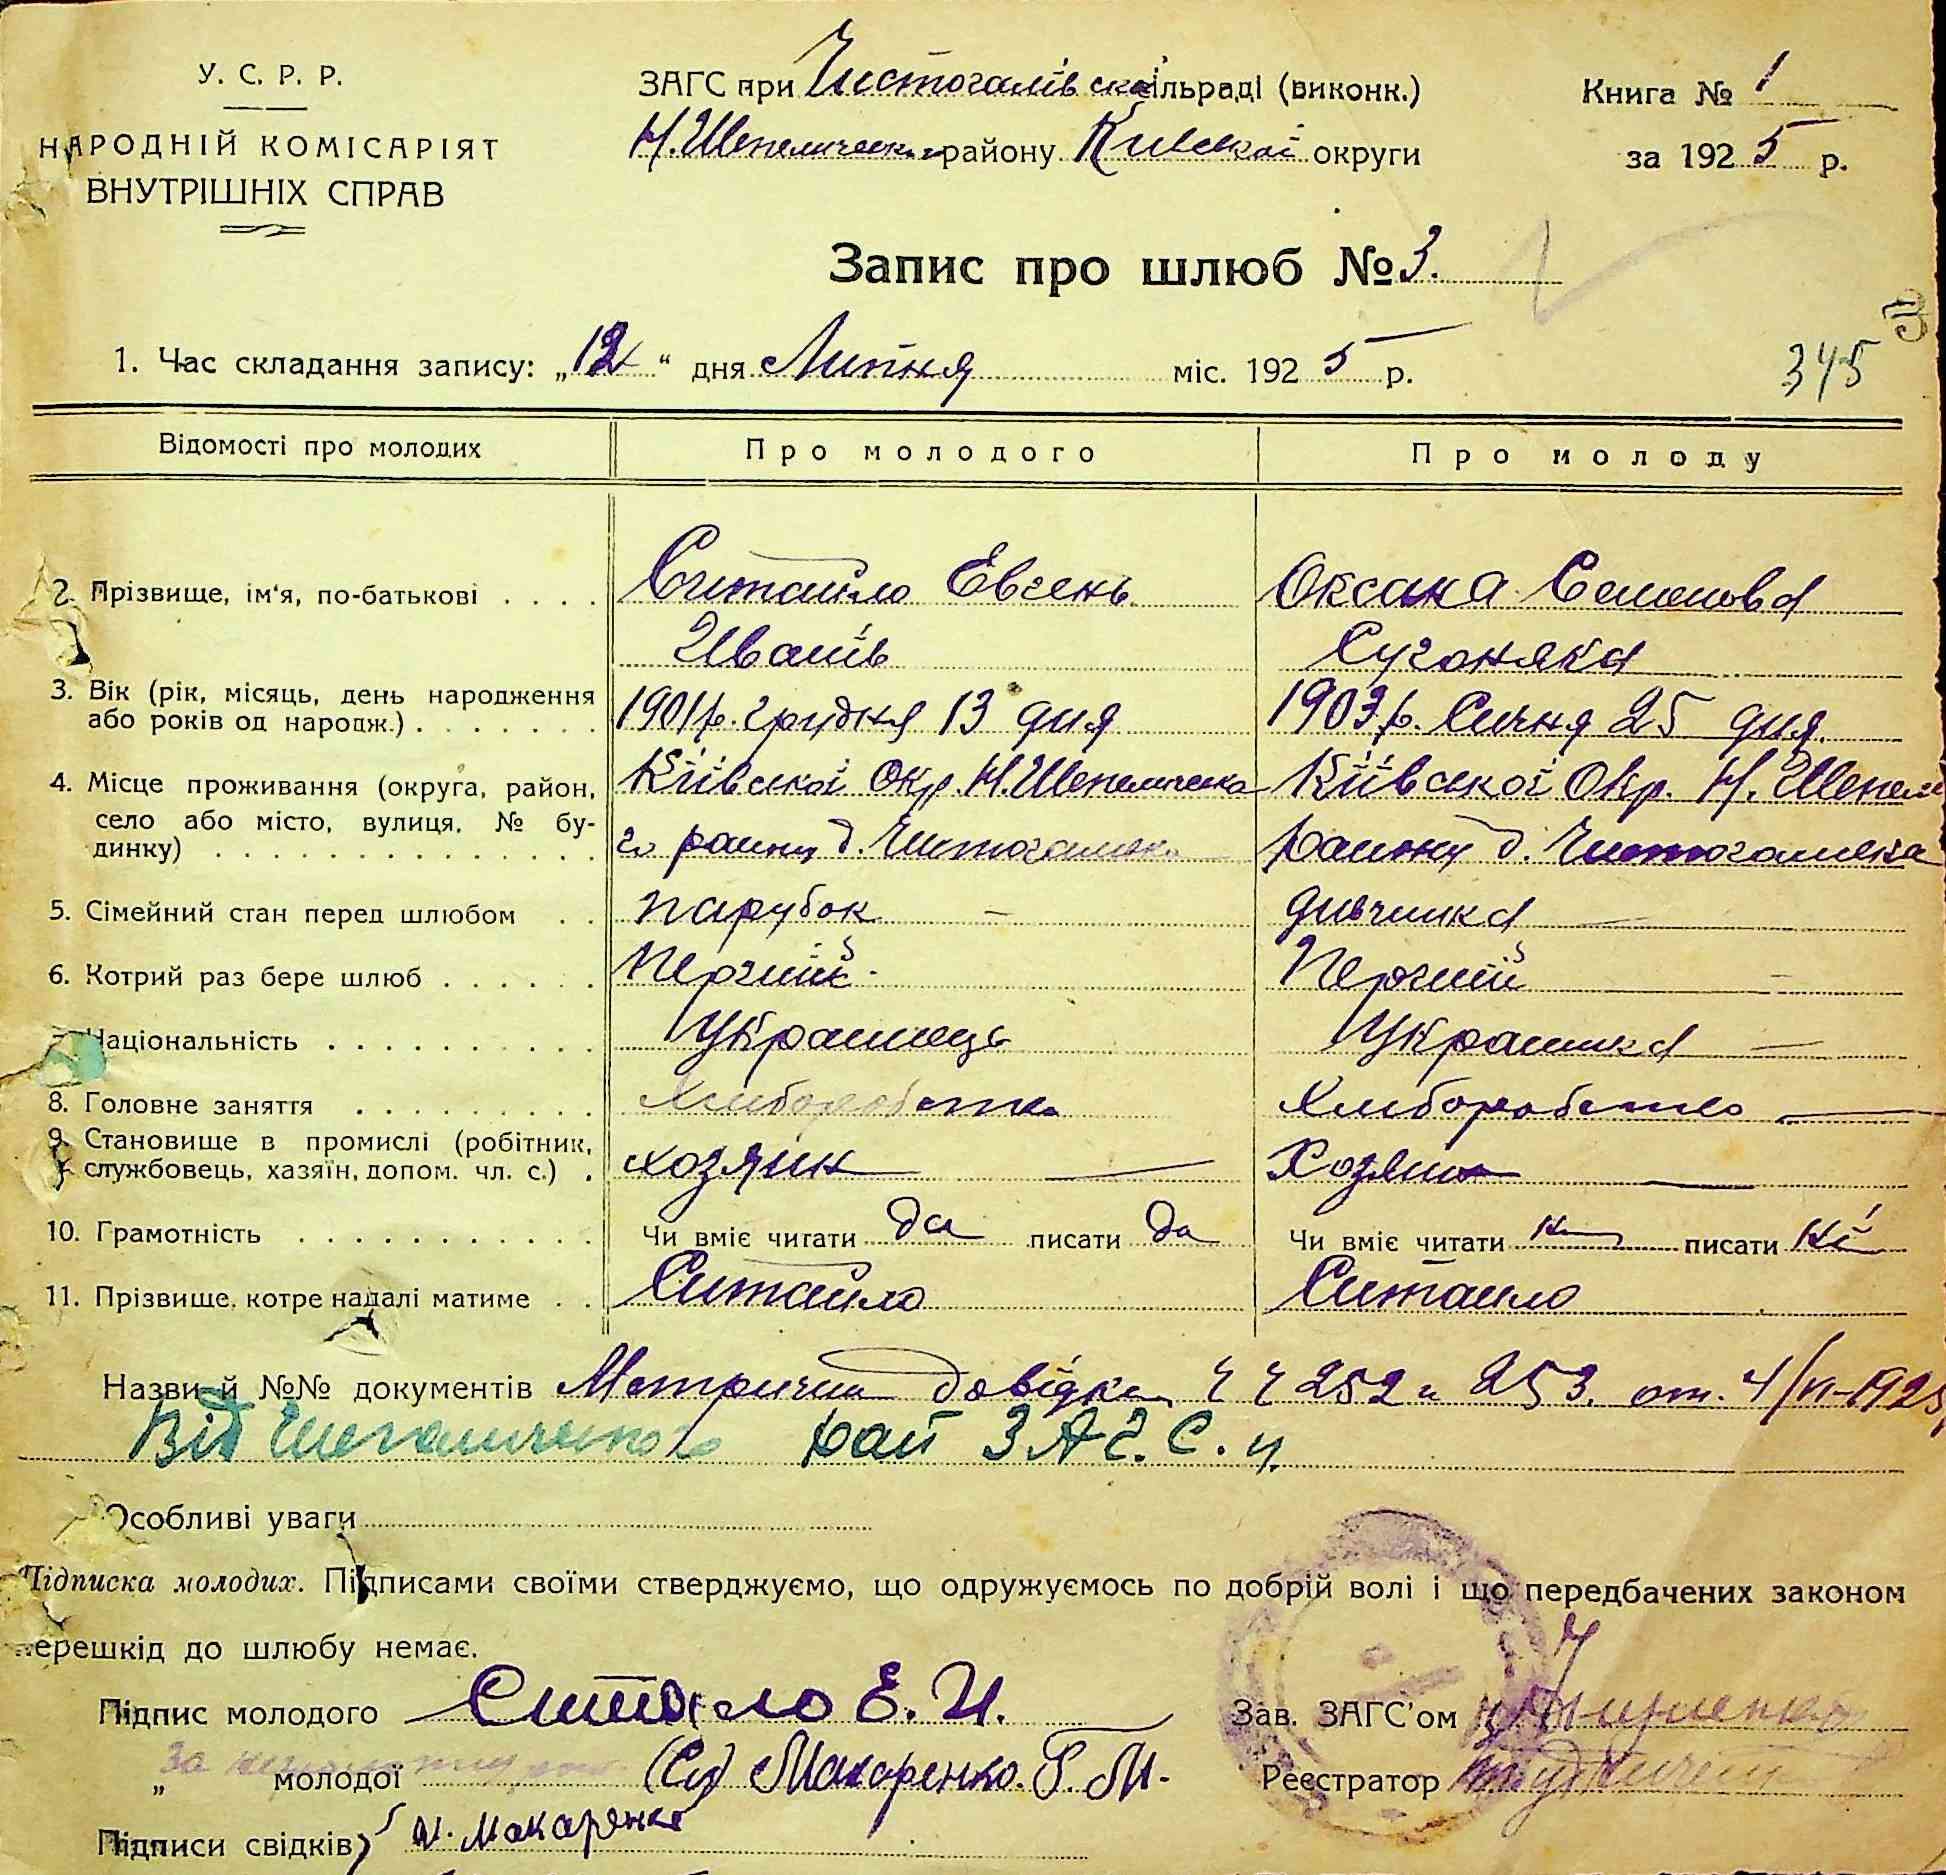 У. С. Р. Р.
НАРОДНІЙ КОМІСАРІЯТ
ВНУТРІШНІХ СПРАВ
ЗАГС при Чистогалівській сільраді (виконк.)
Н. Шепелическ. району Київської округи
Книга № 1
за 1925 р.
Запис про шлюб № 3.
1. Час складання запису: „12“ дня Липня міс. 1925 р.
345
Відомості про молодих Про молодого Про молоду
2. Прізвище, ім'я, по-батькові . . . . Ситайло Евгень Оксана Семенова
Иванів Сугоняка
3. Вік (рік, місяць, день народження
або років од народж.) . . . . . . . 1901 р. грудня 13 дня 1903 р. Сичня 25 дня.
4. Місце проживання (округа, район, Київської Окр. Н. Шепелическа Київської Окр. Н. Шепели
село або місто, вулиця, № бу-
динку) . . . . . . . . . . . . . . . го раину д. Чистогаловка раиону д. Чистогаловка
5. Сімейний стан перед шлюбом . . парубок – дивчинка
6. Котрий раз бере шлюб . . . . . . Перший Перший –
7. Національність . . . . . . . . . . Украинець Украинка –
8. Головне заняття . . . . . . . . . Хлиборобство Хлиборобство
9. Становище в промислі (робітник,
службовець, хазяїн, допом. чл. с.) . хозяин Хозяин
10. Грамотність . . . . . . . . . . . Чи вміє читати да писати да Чи вміє читати ні писати ні
11. Прізвище, котре надалі матиме . . Ситайло Ситаило
Назви й №№ документів Метричні довідки Ч Ч 252 и 253. от. 4/VI–1925
Від рай ЗАГС.у.
Особливі уваги
Підписка молодих. Підписами своїми стверджуємо, що одружуємось по добрій волі і що передбачених законом
перешкід до шлюбу немає.
Підпис молодого Ситайло Е. И.
Зав. ЗАГС'ом
„ молодої За (Су) Макаренко. Г. М.
Реєстратор
Підписи свідків Макаренко